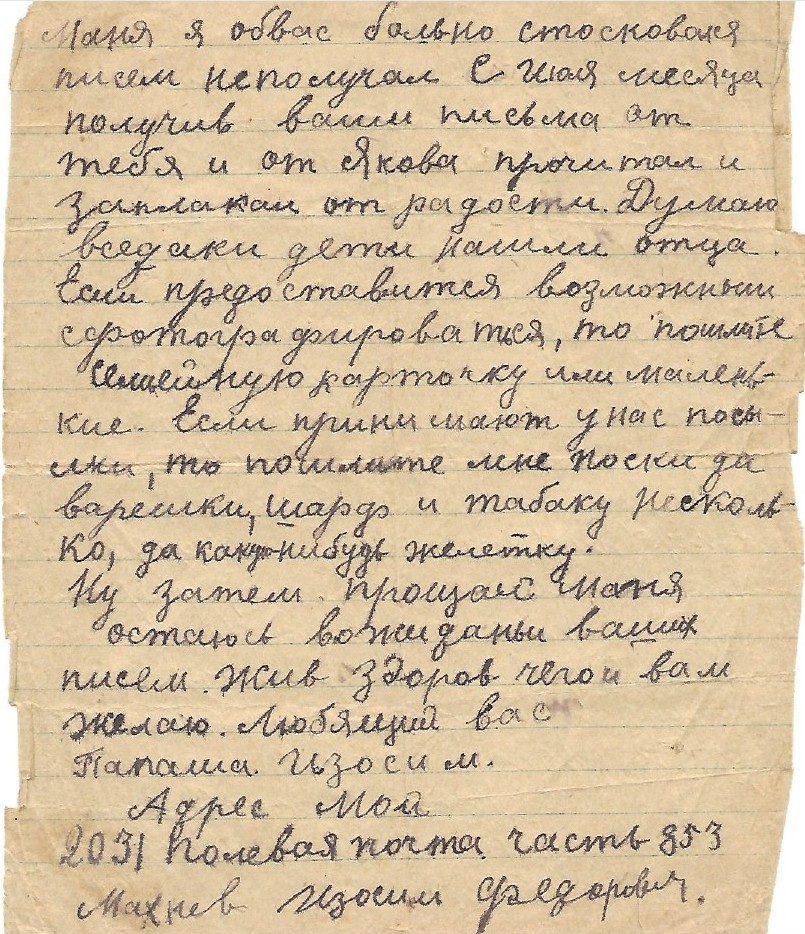 Маня я обвас больно стосковался
писем неполучал с июля месяца
получив ваши письма от
тебя и от Якова прочитал и
заплакал от радости. Думаю
вседаки дети нашли отца.
Если предоставится возможным
сфотографироваться, то пошлите
семейную карточку или малень-
кие. Если принимают у нас посы-
лки, то пошлите мне носки да
варешки, шарф и табаку несколь-
ко, да какую-нибудь желетку.
Ну затем прощаюс Маня
остаюсь вожиданьи ваших
писем. Жив здоров чего и вам
желаю. Любящий вас
Папаша Изосим.
Адрес мой
2031 Полевая почта часть 853
Махнев Изосим Федорович.